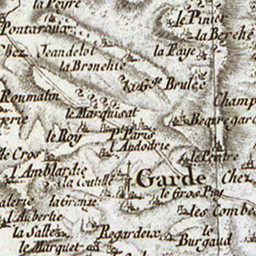 la Peyre
le Pinier
Pontaroux
la Berche
Chez
Jeandelot
la Paye
la Bronchie
Brulée
Roumalin
le Marquisat
Champ
Beauregard
le Roy
pt. Paris
l'Andodrie
le Cros
le Pentre
l'Amblardie
la Coutille
Garde
Chez
le Gros Puy
la Gronze
l'Auberhe
les Combe
la Salle
Regardeix
le
le Marquet
Burgaud